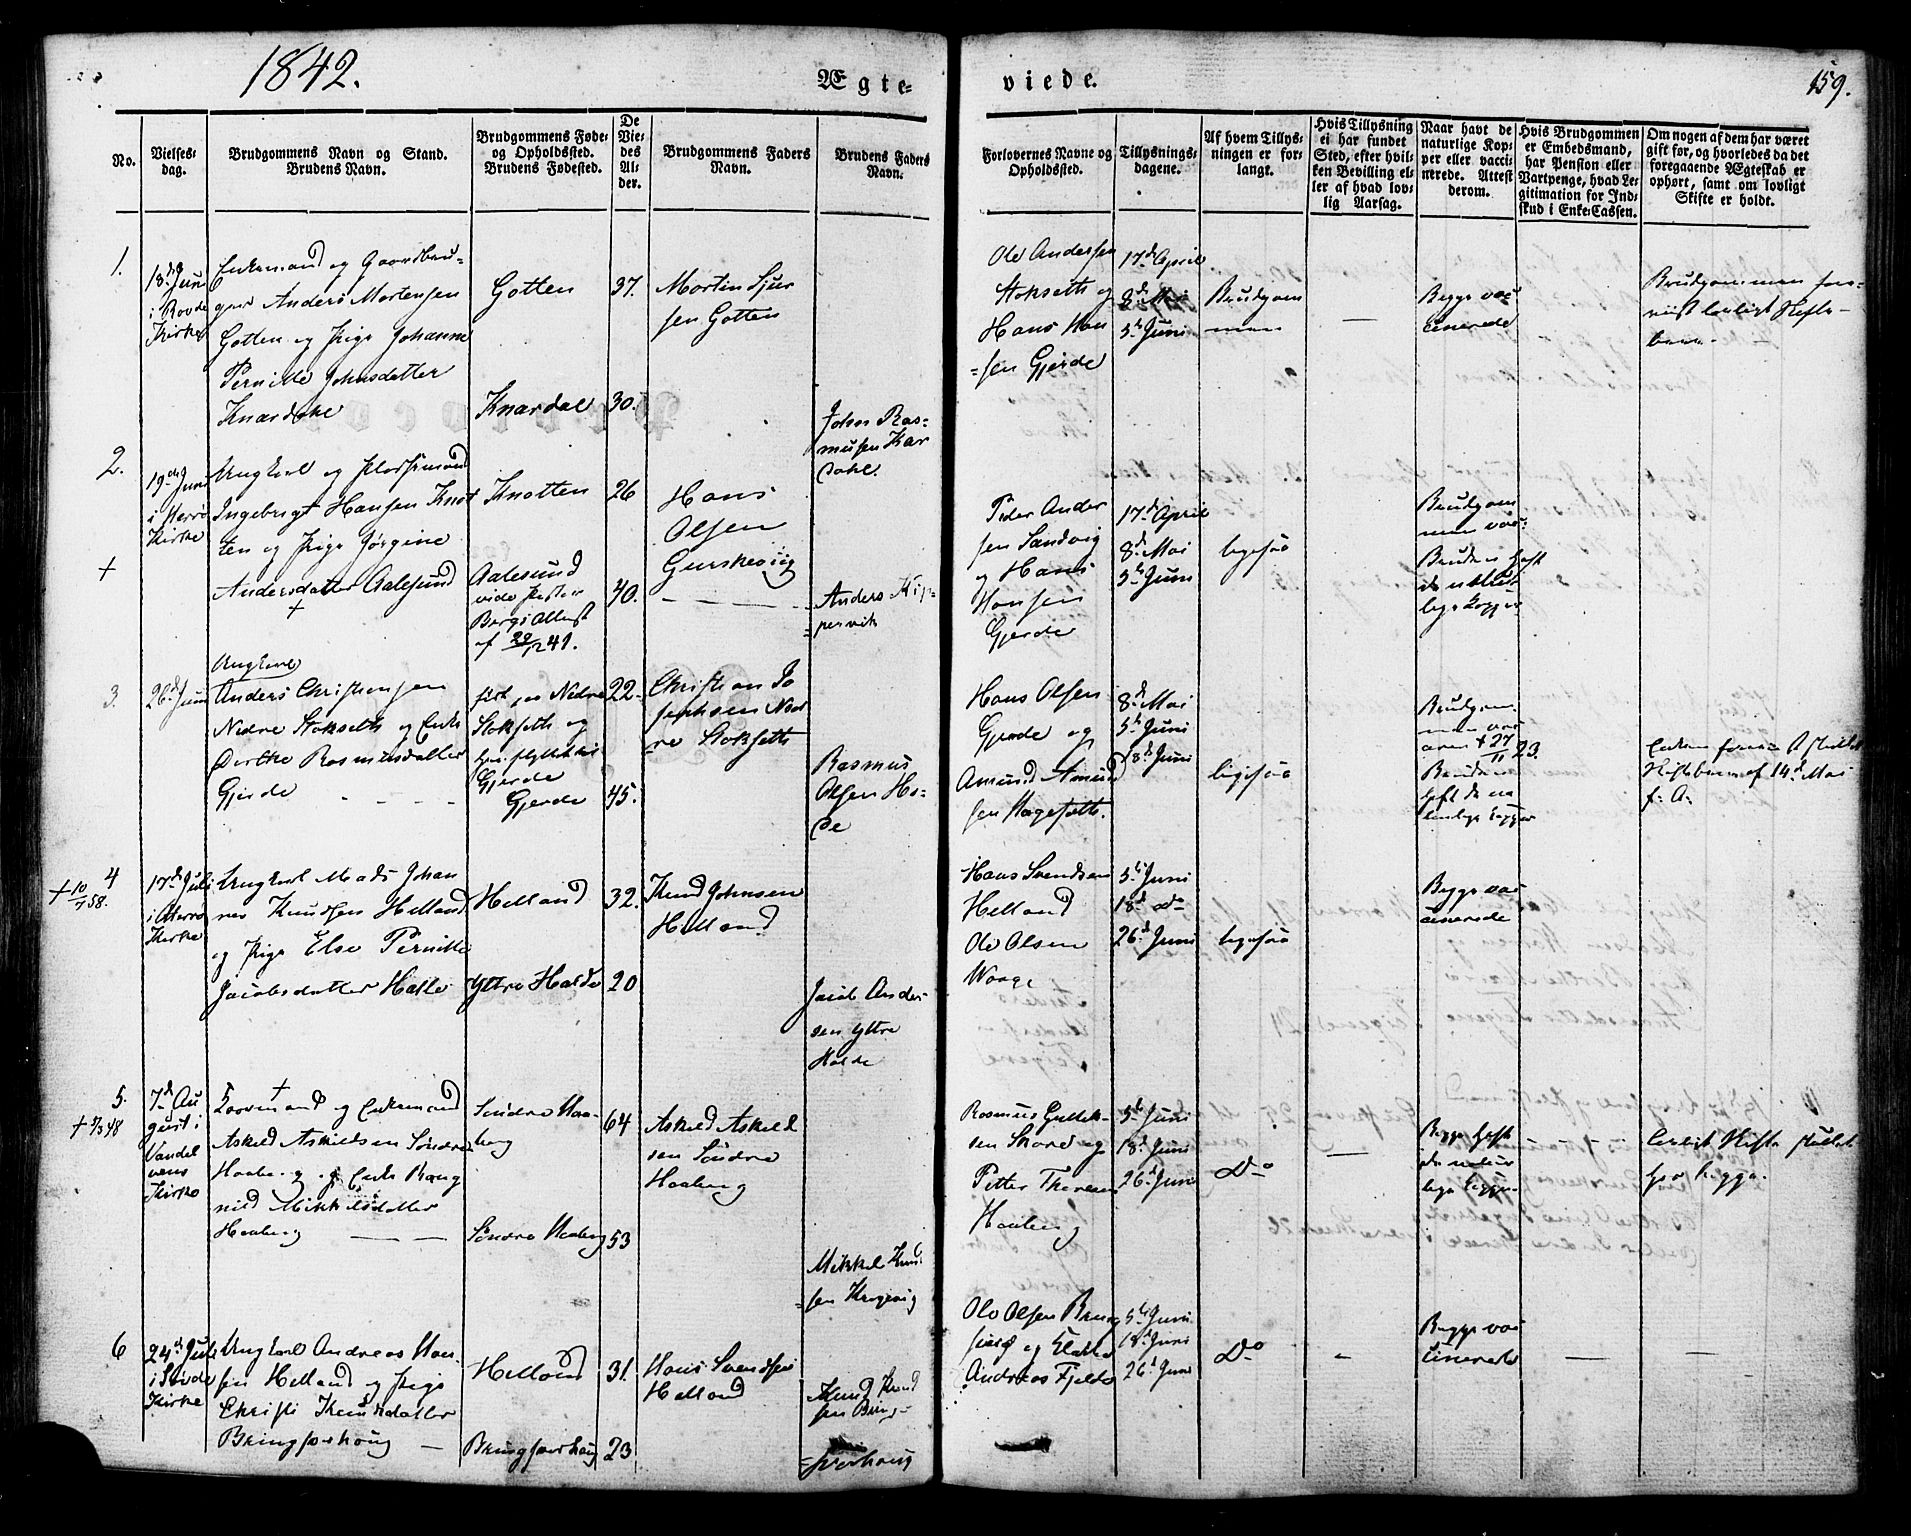 1842.
Ægte-
viede.
159.
No.
Vielses-
dag.
Brudgommens Navn og Stand.
Brudens Navn.
Brudgommens Føde-
og Opholdssted.
Brudens Fødested.
De
Vie-
des
Al-
der.
Brudgommens Faders
Navn.
Brudens Faders
Navn.
Forlovernes Navne og
Opholdssted.
Tillysnings-
dagene.
Af hvem Tillys-
ningen er for-
langt.
Hvis Tillysning
ei har fundet
Sted, efter hvil-
ken Bevilling el-
ler af hvad lov-
lig Aarsag.
Naar havt de
naturlige Kop-
per eller vacci-
nerede. Attest
derom.
Hvis Brudgommen
er Embedsmand,
har Pension eller
Vartpenge, hvad Le-
gitimation for Ind-
skud i Enke-Cassen.
Om nogen af dem har været
gift før, og hvorledes da det
foregaaende Ægteskab er
ophørt, samt om lovligt
Skifte er holdt.
1.
18d Juni
i Rovde
Kirke
Enkemand og Gaardbru-
ger Anders Mortensen
Gotten og Pige Johanne
Pernille Johnsdatter
Knardale
Gotten
Knardal
37.
30.
Morten Sjur
sen Gotten
John Ras-
musen Knar
dahl
Ole Andersen
Stokseth og
Hans Han
sen Gjerde
17d April
8d Mai
5te Juni
Brudgom
men
—
Begge vac
cinerede
Brudgommen
2.
19de Juni
i Herrø
Kirke
+
Ungkarl og
Ingebrigt Hansen Knot
ten og Pige Jørgine
Andersdatter Aalesund
+
Knotten
Aalesund
vide Præsten
Bergs Attest
af 29/12 41.
26
40.
Hans
Olsen
Gurskevig
Anders
Peder Ander
sen Sandvig
og Hans
Hansen
Gjerde
17d April
8d Mai
5te Juni
ligesaa
Brudgom
men vac:
Bruden havt
de natur
lige Kopper
3.
26d Juni
Ungkarl
Anders Christensen
Nedre Stokseth og Enke
Berthe Rasmusdatter
Gjerde
født paa Nedre
Stokseth og
Gjerde
Gjerde
22.
45.
Christian Jo
sephsen Ned
re Stokseth
Rasmus
Olsen Ho-
de
Hans Olsen
Gjerde og
Amund Amund
sen Hagesæth.
8d Mai
5te Juni
18d Juni
ligesaa
Brudgom
men vac
27/11 23.
Bruden
havt de na
turlige Kopper
Skiftebrev af 14d Mai
f: A:
4
+ 10/7 58.
17d Juli
i Herrø
Kirke
Ungkarl Mads Johan
nes Knudsen Helland
og Pige Else Pernille
Jacobsdatter Halle
Helland
Yttre Halde
32.
20
Knud Johnsen
Helland
Jacob Ander
sen Yttre
Halde
Hans Svendsen
Helland
Ole Olsen
Waage
5te Juni
18d do
26d Juni
ligesaa
Begge vac
cinerede
5.
+ 9/3 48
7d Au
gust i
Vandel
vens
Kirke
+
og Enkemand
Askild Askildsen Søndre
Haaberg og Enke Rang
nild Mikkelsdatter
Haaberg
Søndre Haa-
berg
Søndre Haaberg
64
53
Askild Askild
sen Søndre
Haaberg
Mikkel Knud
sen Krogevig
Rasmus Gullek-
sen Skare og
Petter Thoresen
Haaberg
5te Juni
18d Juni
26d Juni
Do
—
Begge havt
de natur
lige Kopper
Lovlidt Skifte sluttet
hos begge.
6
24de Juli
i Søvde
Kirke
Ungkarl Andreas Han-
sen Helland og Pige
Christi Knudsdatter
Bringsvorhoug
Helland
Bringsvorhoug
31.
23
Hans Svendsen
Helland
Knud Knud
sen Bring-
svorhoug
Ole Olsen Bring
Andreas Fjelde
5te Juni
18d Juni
26d Juni
Do
—
Begge vac
cinerede
—
—